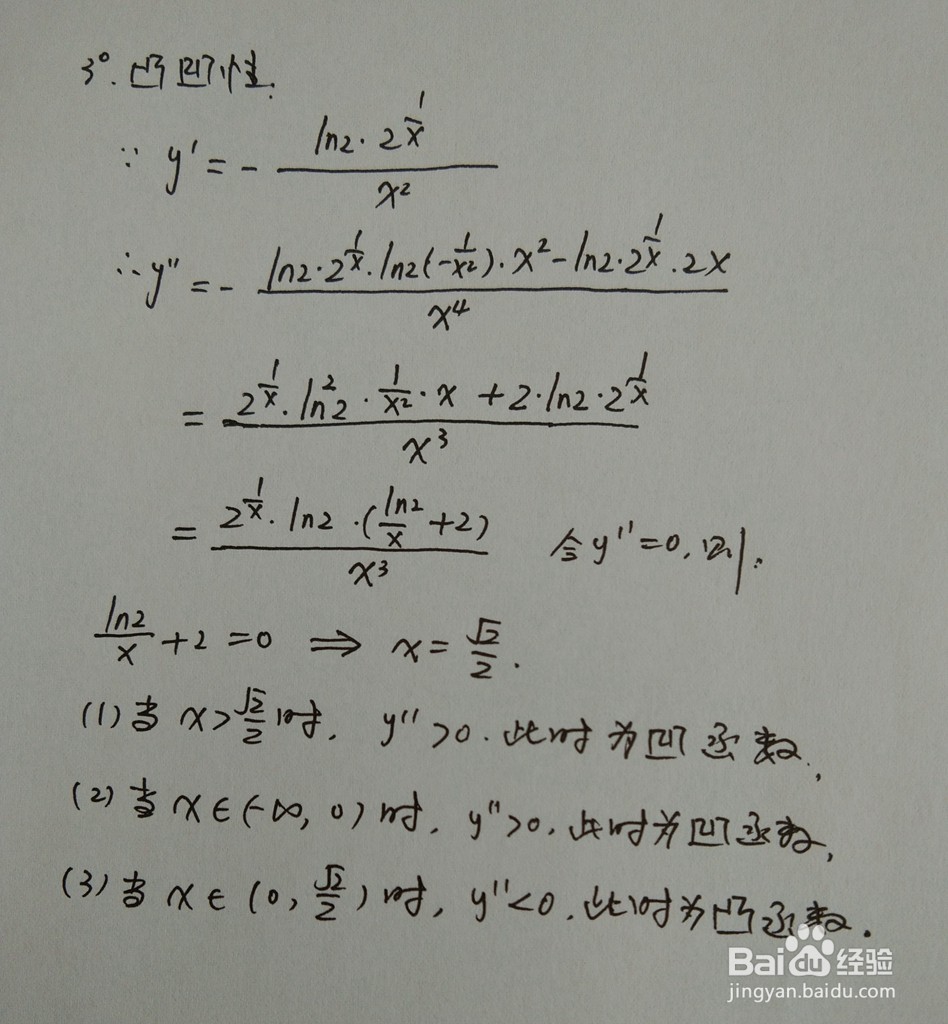 3°. 凸凹性.
∵ y' = - (ln2·2^(1/x)) / x²
∴ y'' = - (ln2·2^(1/x)·ln2(-1/x²)·x² - ln2·2^(1/x)·2x) / x⁴
= (2^(1/x)·ln²2·(1/x²)·x + 2·ln2·2^(1/x)) / x³
= (2^(1/x)·ln2·(ln2/x + 2)) / x³ 令y''=0, 则.
ln2/x + 2 = 0 ⇒ x = √2/2.
(1) 当 x > √2/2 时, y'' > 0. 此时为凹函数.,
(2) 当 x ∈ (-∞, 0) 时, y'' > 0, 此时为凹函数,
(3) 当 x ∈ (0, √2/2) 时, y'' < 0. 此时为凸函数.
Baidu经验
jingyan.baidu.com